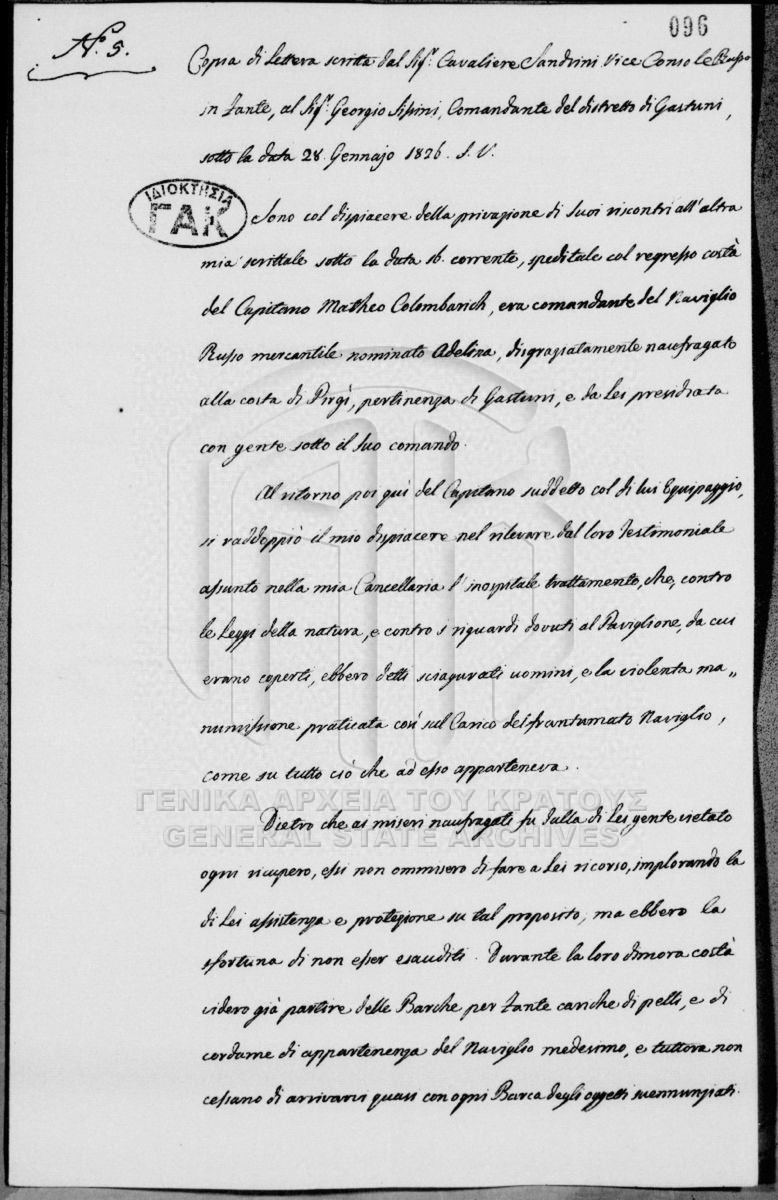 096
N.º 5.
Copia di Lettera scritta dal Sig.r Cavaliere Sandrini Vice Console Russo
in Zante, al Sig.r Georgio Sisini, Comandante del distretto di Gastuni,
sotto la data 28 Gennajo 1826. S. V.
ΙΔΙΟΚΤΗΣΙΑ
ΓΑΚ
Sono col dispiacere della privazione di Suoi riscontri all'altra
mia scrittale sotto la data 16. corrente, speditale col regresso costà
del Capitano Matheo Colombarich, era comandante del Naviglio
Russo mercantile nominato Adelina, disgraziatamente naufragato
alla costa di Pirgi, pertinenza di Gastuni, e da Lei presidiata
con gente sotto il Suo comando.
Al ritorno poi quì del Capitano suddetto col di lui Equipaggio,
si raddoppiò il mio dispiacere nel rilevare dal loro testimoniale
assunto nella mia Cancellaria l'inospitale trattamento, che, contro
le Leggi della natura, e contro i riguardi dovuti al Paviglione, da cui
erano coperti, ebbero detti sciagurati uomini, e la violenta ma„
numissione praticata così sul Carico del frantumato Naviglio,
come su tutto ciò che ad esso apparteneva.
ΓΕΝΙΚΑ ΑΡΧΕΙΑ ΤΟΥ ΚΡΑΤΟΥΣ
GENERAL STATE ARCHIVES
Dietro che ai miseri naufragati fu dalla di Lei gente vietato
ogni ricupero, essi non ommisero di fare a Lei ricorso, implorando la
di Lei assistenza e protezione su tal proposito, ma ebbero la
sfortuna di non esser esauditi. Durante la loro dimora costà
videro già partire delle Barche per Zante cariche di pelli, e di
cordame di appartenenza del Naviglio medesimo, e tuttora non
cessano di arrivarvi quasi con ogni Barca degli oggetti suennunziati.